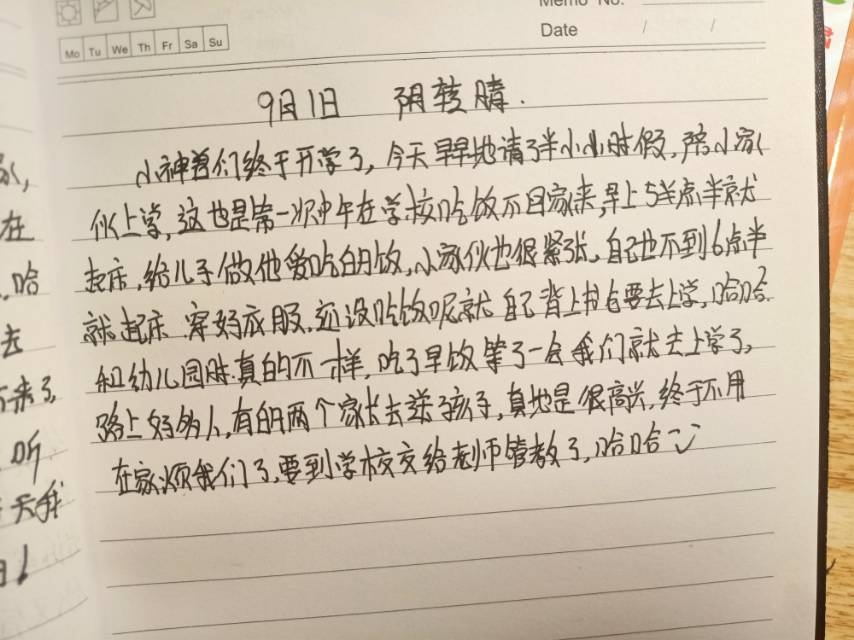 Memo No.
Mo Tu We Th Fr Sa Su
Date / /
9月1日 阴转晴.
小神兽们终于开学了,今天早早地请了半小小时假,陪小家
伙上学,这也是第一次中午在学校吃饭不回家来,早上5点半就
起床,给儿子做他爱吃的饭,小家伙也很紧张,自己也不到6点半
就起床 穿好衣服,还没吃饭呢就自己背上书包要去上学,哈哈.
和幼儿园时真的不一样,吃了早饭等了一会我们就去上学了,
路上好多人,有的两个家长去送孩子,真地是很高兴,终于不用
在家烦我们了,要到学校交给老师管教了,哈哈
在
哈
去
来了,
听
天我